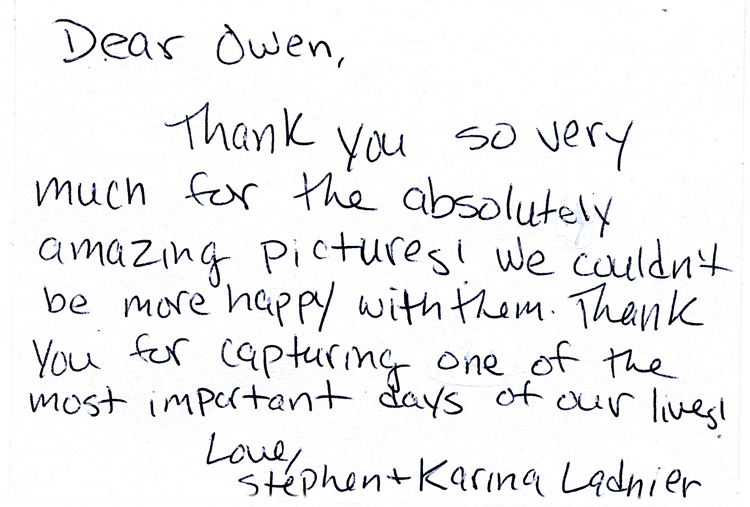 Dear Owen,
Thank you so very
much for the absolutely
amazing pictures! We couldn't
be more happy with them. Thank
you for capturing one of the
most important days of our lives!
Love,
Stephen + Karina Ladnier